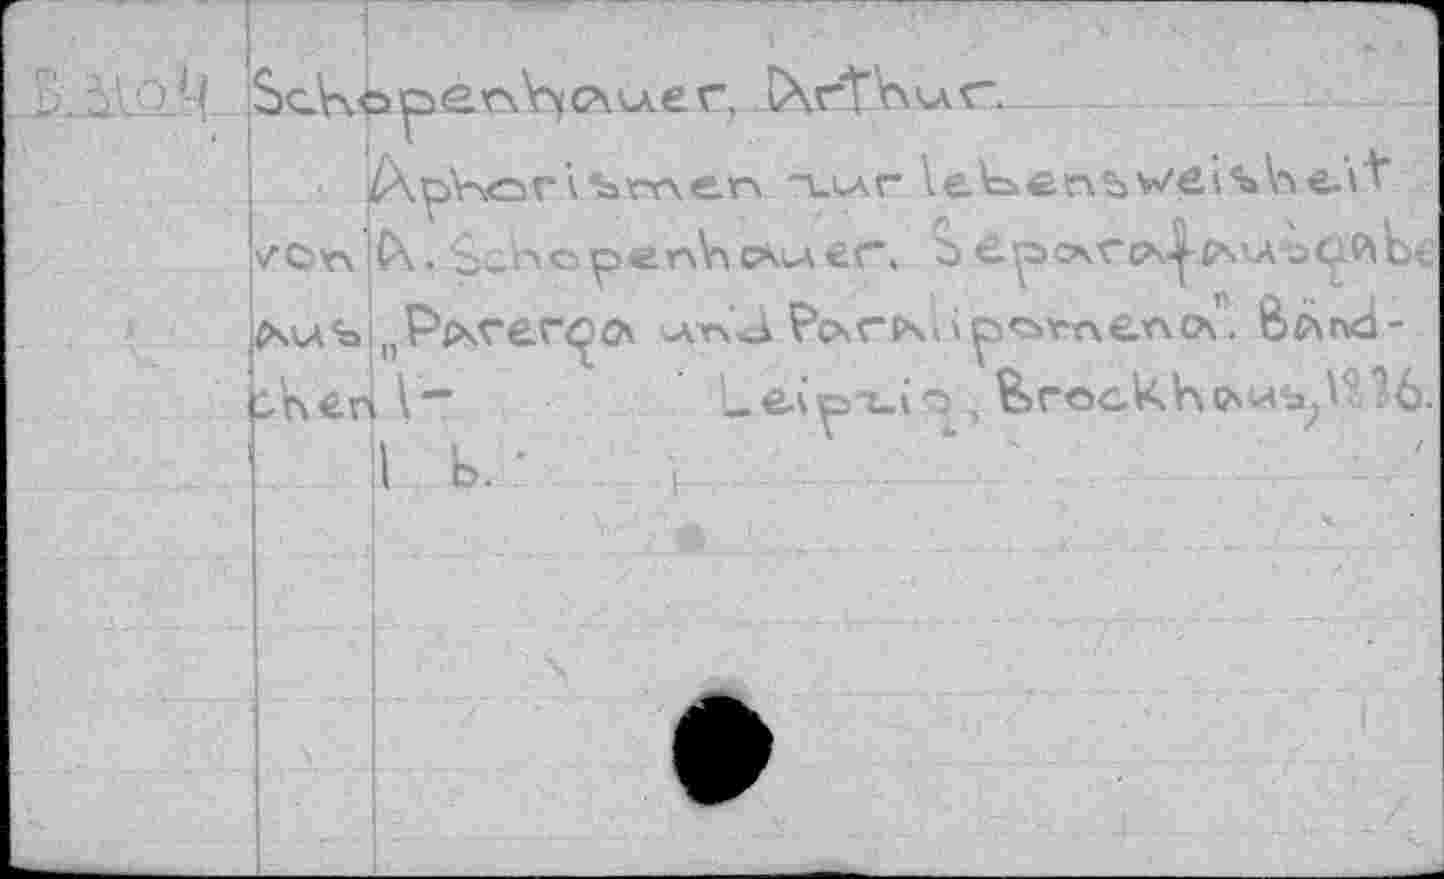 Schopenhauer, Arthur.
Aphorismen zur lebensweisheit
von A. Schopenhauer. Separatausgabe
aus „Parerga und Paralipomena". Bänd-
chen 1- Leipzig, Brockhaus,
1 b.